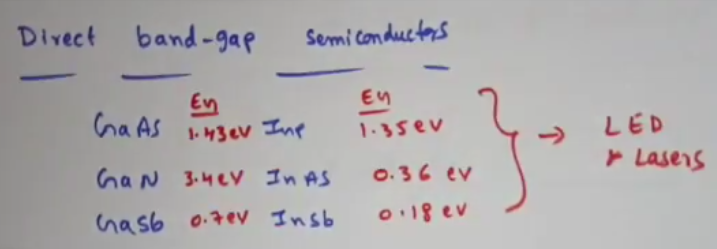 Direct band-gap semiconductors
Eg Eg
GaAs 1.43 eV InP 1.35 eV → LED
GaN 3.4 eV InAs 0.36 eV & Lasers
GaSb 0.7 eV InSb 0.18 eV